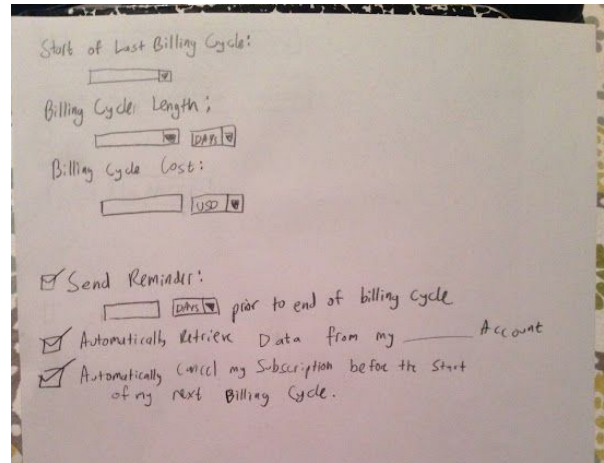 Start of Last Billing Cycle:
Billing Cycle Length:
DAYS
Billing Cycle Cost:
USD
Send Reminder:
DAYS prior to end of billing cycle
Automatically Retrieve Data from my ______ Account
Automatically Cancel my Subscription before the Start
of my next Billing Cycle.